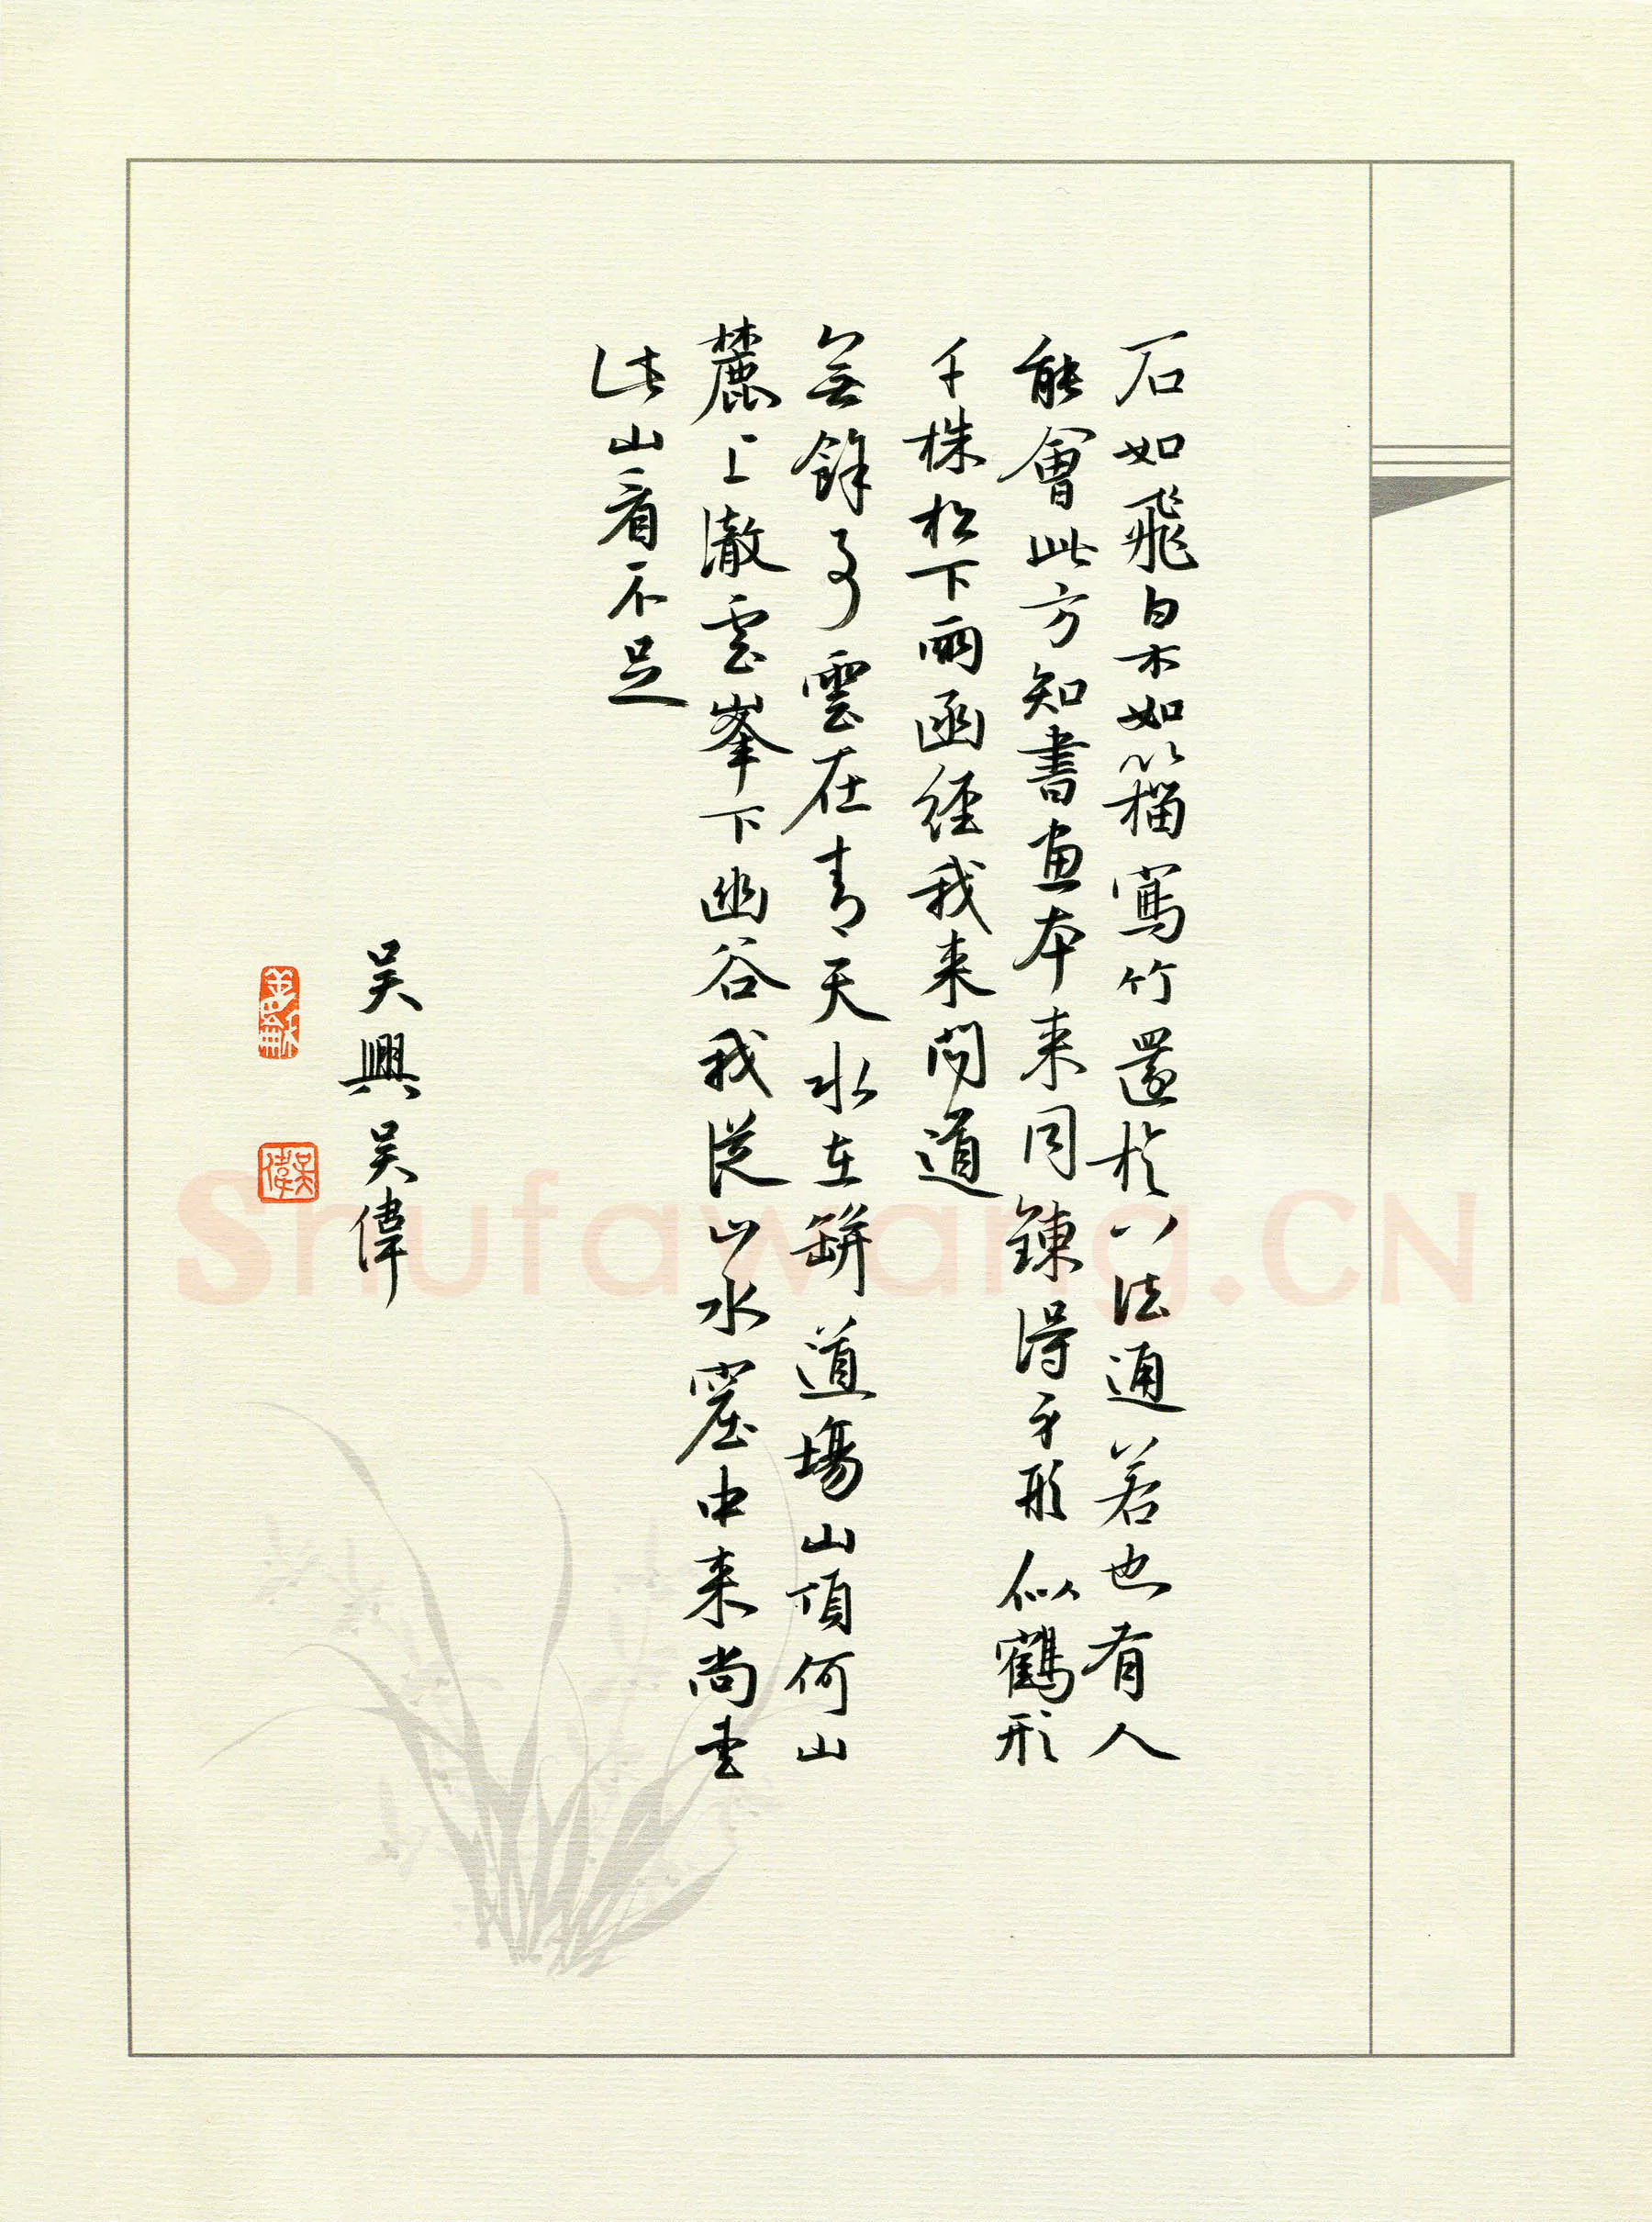 石如飛白木如籀寫竹還於八法通若也有人
能會此方知書畫本来同鍊得身形似鶴形
千株松下兩函經我来問道
無餘事雲在青天水在缾道場山頂何山
麓上澈雲峯下幽谷我從山水窟中来尚愛
此山看不足
吴興吴偉
吴偉
Shufawang.CN